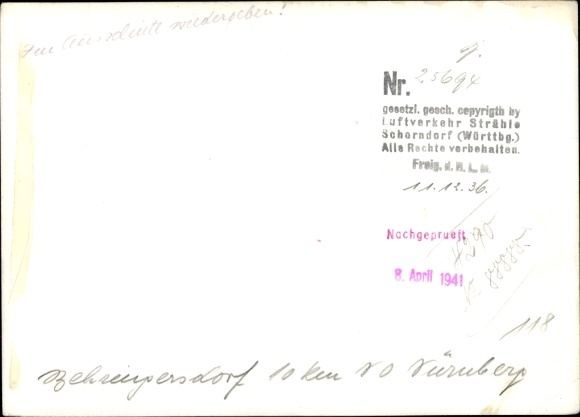 Im Ausschnitt wiedergeben!
Nr. 25694
gesetzl. gesch. copyrigth by
Luftverkehr Strähle
Schorndorf (Württbg.)
Alle Rechte vorbehalten.
Freig. d. R. L. M.
11.12.36.
Nachgeprueft
8. April 1941
118
Behringersdorf 10 km NO Nürnberg